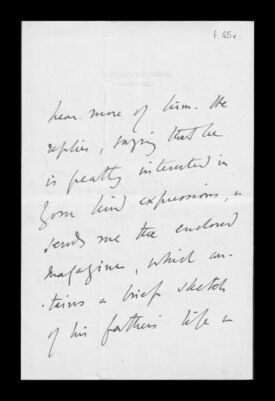 f. 45v
hear more of him. He
replies, saying that he
is greatly interested in
your kind expressions, &
sends me the enclosed
magazine, which con-
-tains a brief sketch
of his father's life &